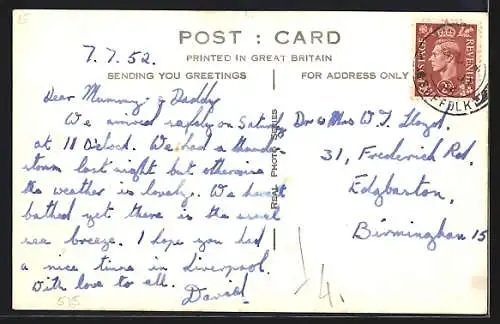 7.7.52.
POST : CARD
PRINTED IN GREAT BRITAIN
SENDING YOU GREETINGS
FOR ADDRESS ONLY
POSTAGE REVENUE
FFOLK
REAL PHOTO SERIES
Dear Mummy & Daddy
We arrived safely on Saturday
at 11 O'clock. We had a thunder
storm last night but otherwise
the weather is lovely. We haven't
bathed yet there is the usual
sea breeze. I hope you had
a nice time in Liverpool.
With love to all.
David
Dr & Mrs W.T. Lloyd.
31, Frederick Rd,
Edgbaston,
Birmingham 15
515
14.